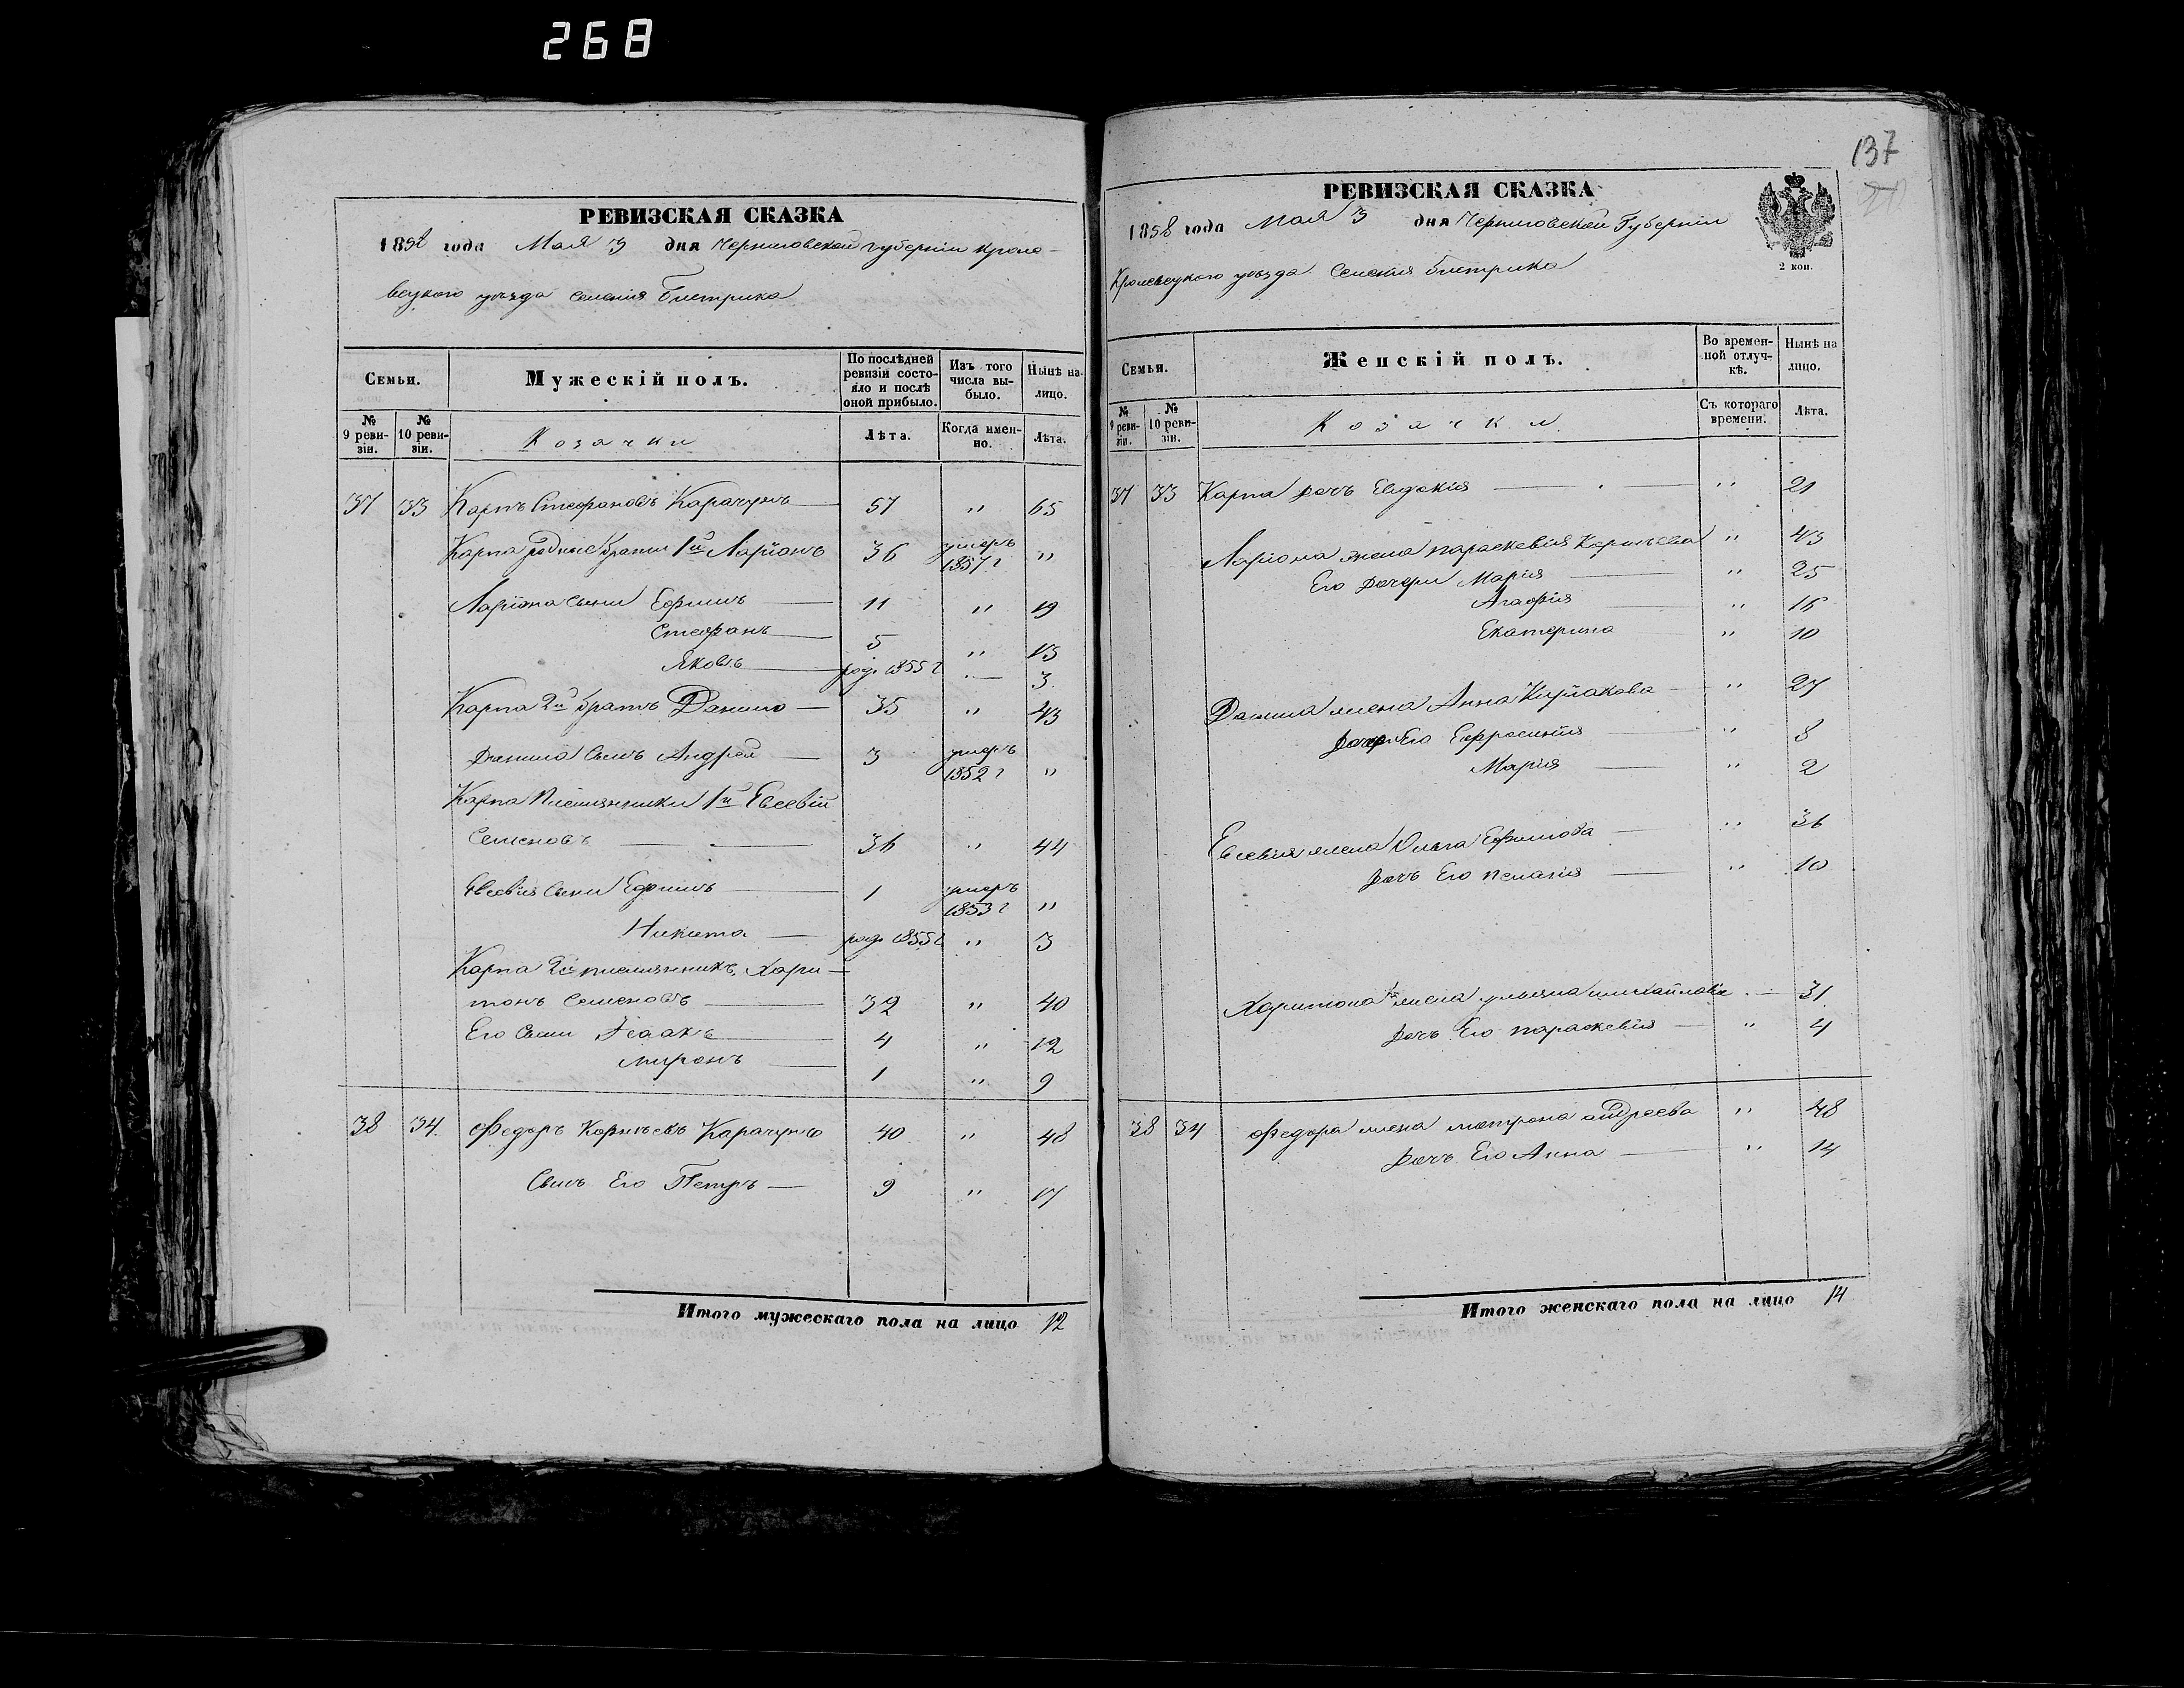 268
РЕВИЗСКАЯ СКАЗКА
1858 года Мая 3 дня Черниговской губерніи Кроле-
вецкого уезда Селенія Бистрика
Семьи.
Мужескій полъ.
По послѣдней ревизіи состо-яло и послѣ оной прибыло.
Изъ того числа вы-было.
Нынѣ на лицо.
№ 9 реви-зіи.
№ 10 реви-зіи.
Козачки
Лѣта.
Когда имен-но.
Лѣта.
37 33 Карпъ Стефановъ Карачунъ 57 " 65
Карпа родные братья 1й Ларіонъ 36 умеръ 1857 г "
Ларіона сыни Ефимъ 11 " 19
Стефанъ 5 " 13
Яковъ род. 1855 г — 3
Карпа 2й братъ Данило 35 " 43
Данила сынъ Андрей 3 умеръ 1852 г "
Карпа племянники 1й Евсевій
Семеновъ 36 " 44
Евсевія сыни Ефимъ 1 умеръ 1853 г "
Никита род. 1855 г " 3
Карпа 2й племянникъ Хари-
тонъ Семеновъ 32 " 40
Его сыни Исаакъ 4 " 12
Миронъ 1 " 9
38 34 Федоръ Корнѣевъ Карачунъ 40 " 48
Сынъ Его Петръ 9 " 17
Итого мужескаго пола на лицо 12
137
РЕВИЗСКАЯ СКАЗКА
1858 года Мая 3 дня Черниговской Губерніи
2 коп.
Кролевецкого уѣзда Селенія Бистрика
Семьи.
Женскій полъ.
Во времен-ной отлуч-кѣ.
Нынѣ на лицо.
№ 9 реви-зіи.
№ 10 реви-зіи.
Козачки
Съ котораго времени.
Лѣта.
37 33 Карпа дочъ Евдокія " 21
Ларіона жена Параскевія Корнѣева " 43
Его дочери Марія " 25
Агафія " 16
Екатерина " 10
Данила жена Анна " 27
дочери Его Ефросинія " 8
Марія " 2
Евсевія жена Ольга Ефимова " 36
дочъ Его Пелагія " 10
Харитона жена Ульяна Михайлова — 31
дочъ Его Параскевія " 4
38 34 Федора жена Мотрона Андреева " 48
Дочъ Его Анна " 14
Итого женскаго пола на лицо 14